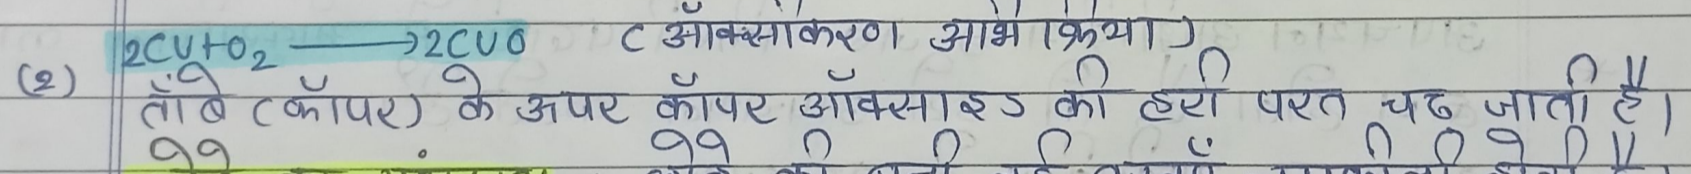 2CU+O2 → 2CUO (ऑक्सीकरण अभिक्रिया)
(2) ताँबे (कॉपर) के ऊपर कॉपर ऑक्साइड की हरी परत चढ जाती है।